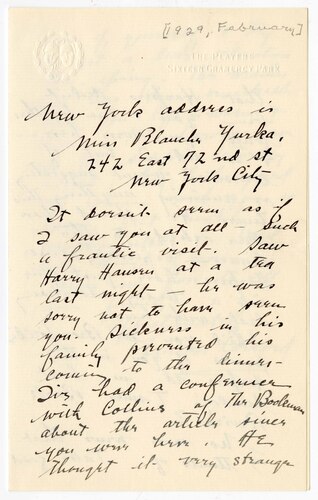 [1929, February]
THE PLAYERS
SIXTEEN GRAMERCY PARK
New York address is
Miss Blanche Yurka,
242 East 72nd st
New York City
It doesn't seem as if
I saw you at all - Such
a frantic visit. Saw
Harry Hansen at a tea
last night - he was
sorry not to have seen
you. Sickness in his
family prevented his
coming to the dinner -
I've had a conference
with Collins of the Bookman
about the article since
you were here. HE
thought it very strange